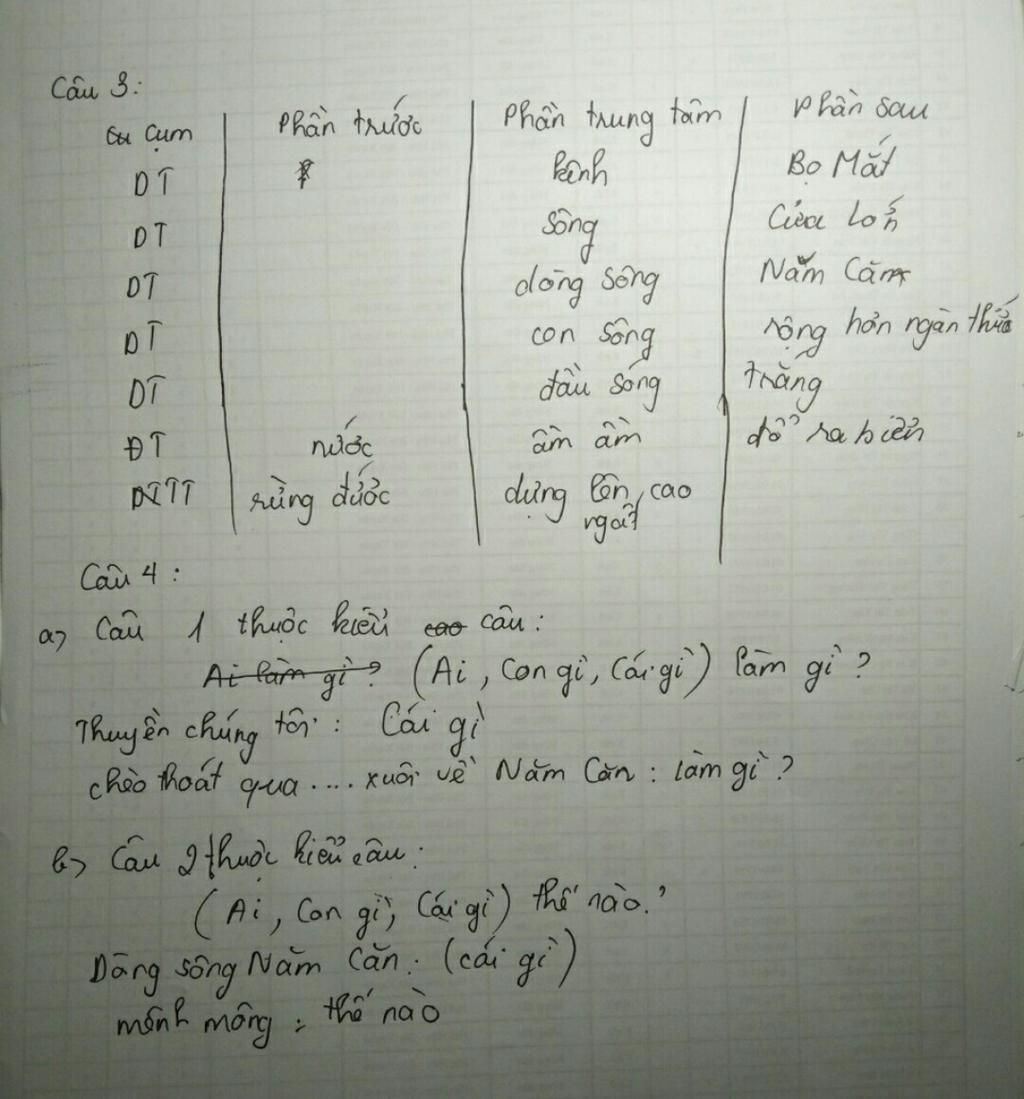 Câu 3:
Cụm | Phần trước | Phần trung tâm | Phần sau
DT | | kênh | Bọ Mắt
DT | | sông | Cửa Lớn
DT | | dòng sông | Năm Căn
DT | | con sông | rộng hơn ngàn thước
DT | | đầu sóng | trắng
ĐT | nước | ầm ầm | đổ ra biển
TT | rừng đước | dựng lên cao
ngất
Câu 4:
a) Câu 1 thuộc kiểu câu:
Ai làm gì? (Ai, Con gì, Cái gì) làm gì?
Thuyền chúng tôi: Cái gì
chèo thoát qua .... xuôi về Năm Căn: làm gì?
b) Câu 2 thuộc kiểu câu:
(Ai, Con gì, Cái gì) thế nào?
Dòng sông Năm Căn: (cái gì)
mênh mông: thế nào